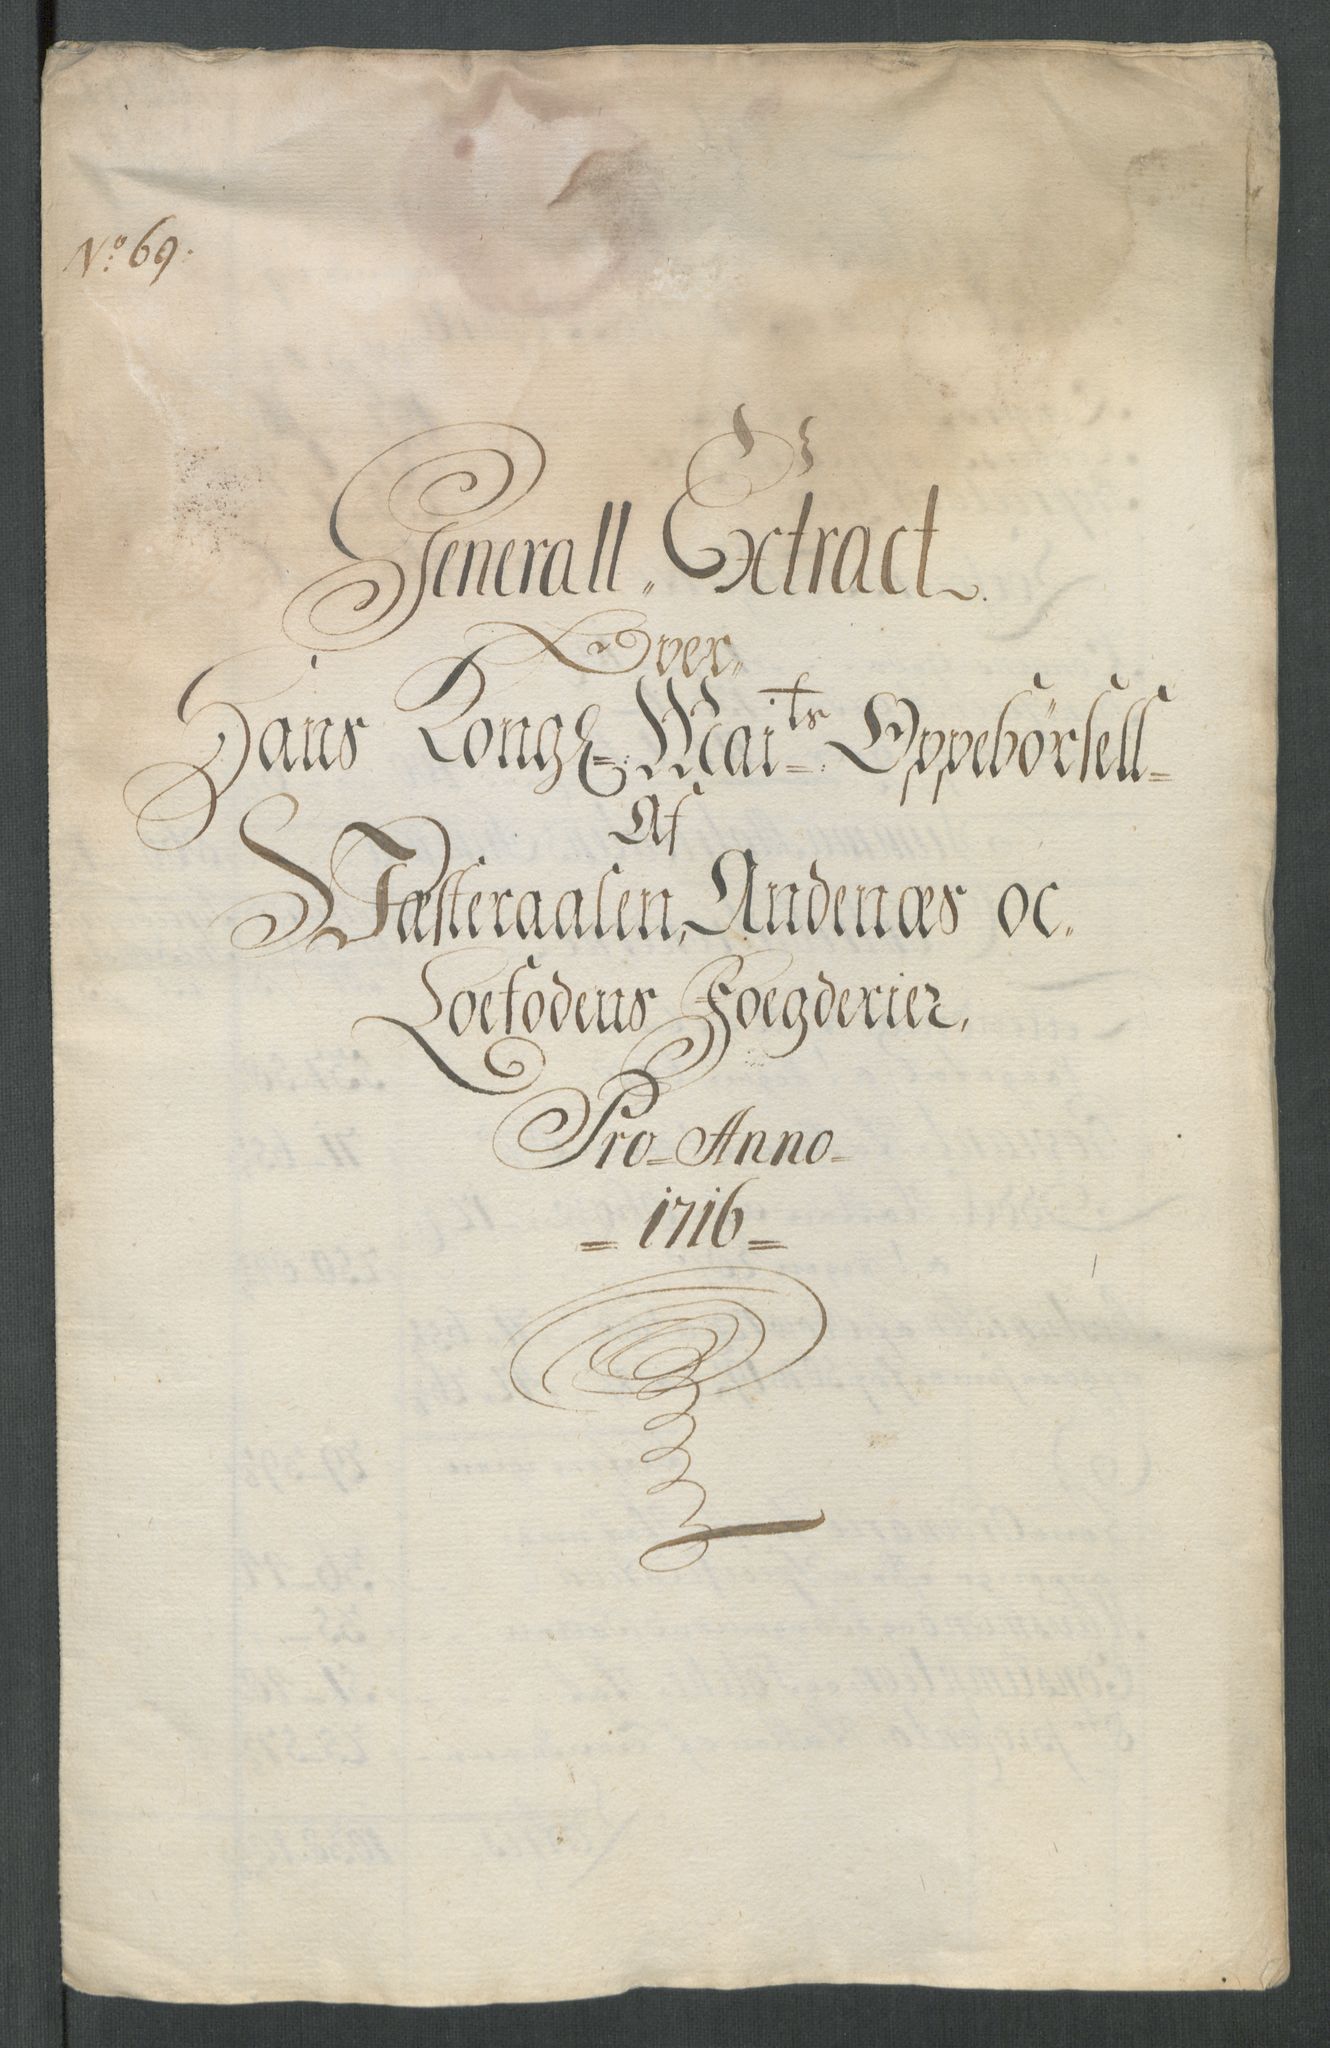 No 69.
Generall Extract
Over
Hans Kongl: Maits Oppebörsell
Af
Wæsteraalen, Andenæs oc
Loefodens Foegderier,
Pro Anno
1716